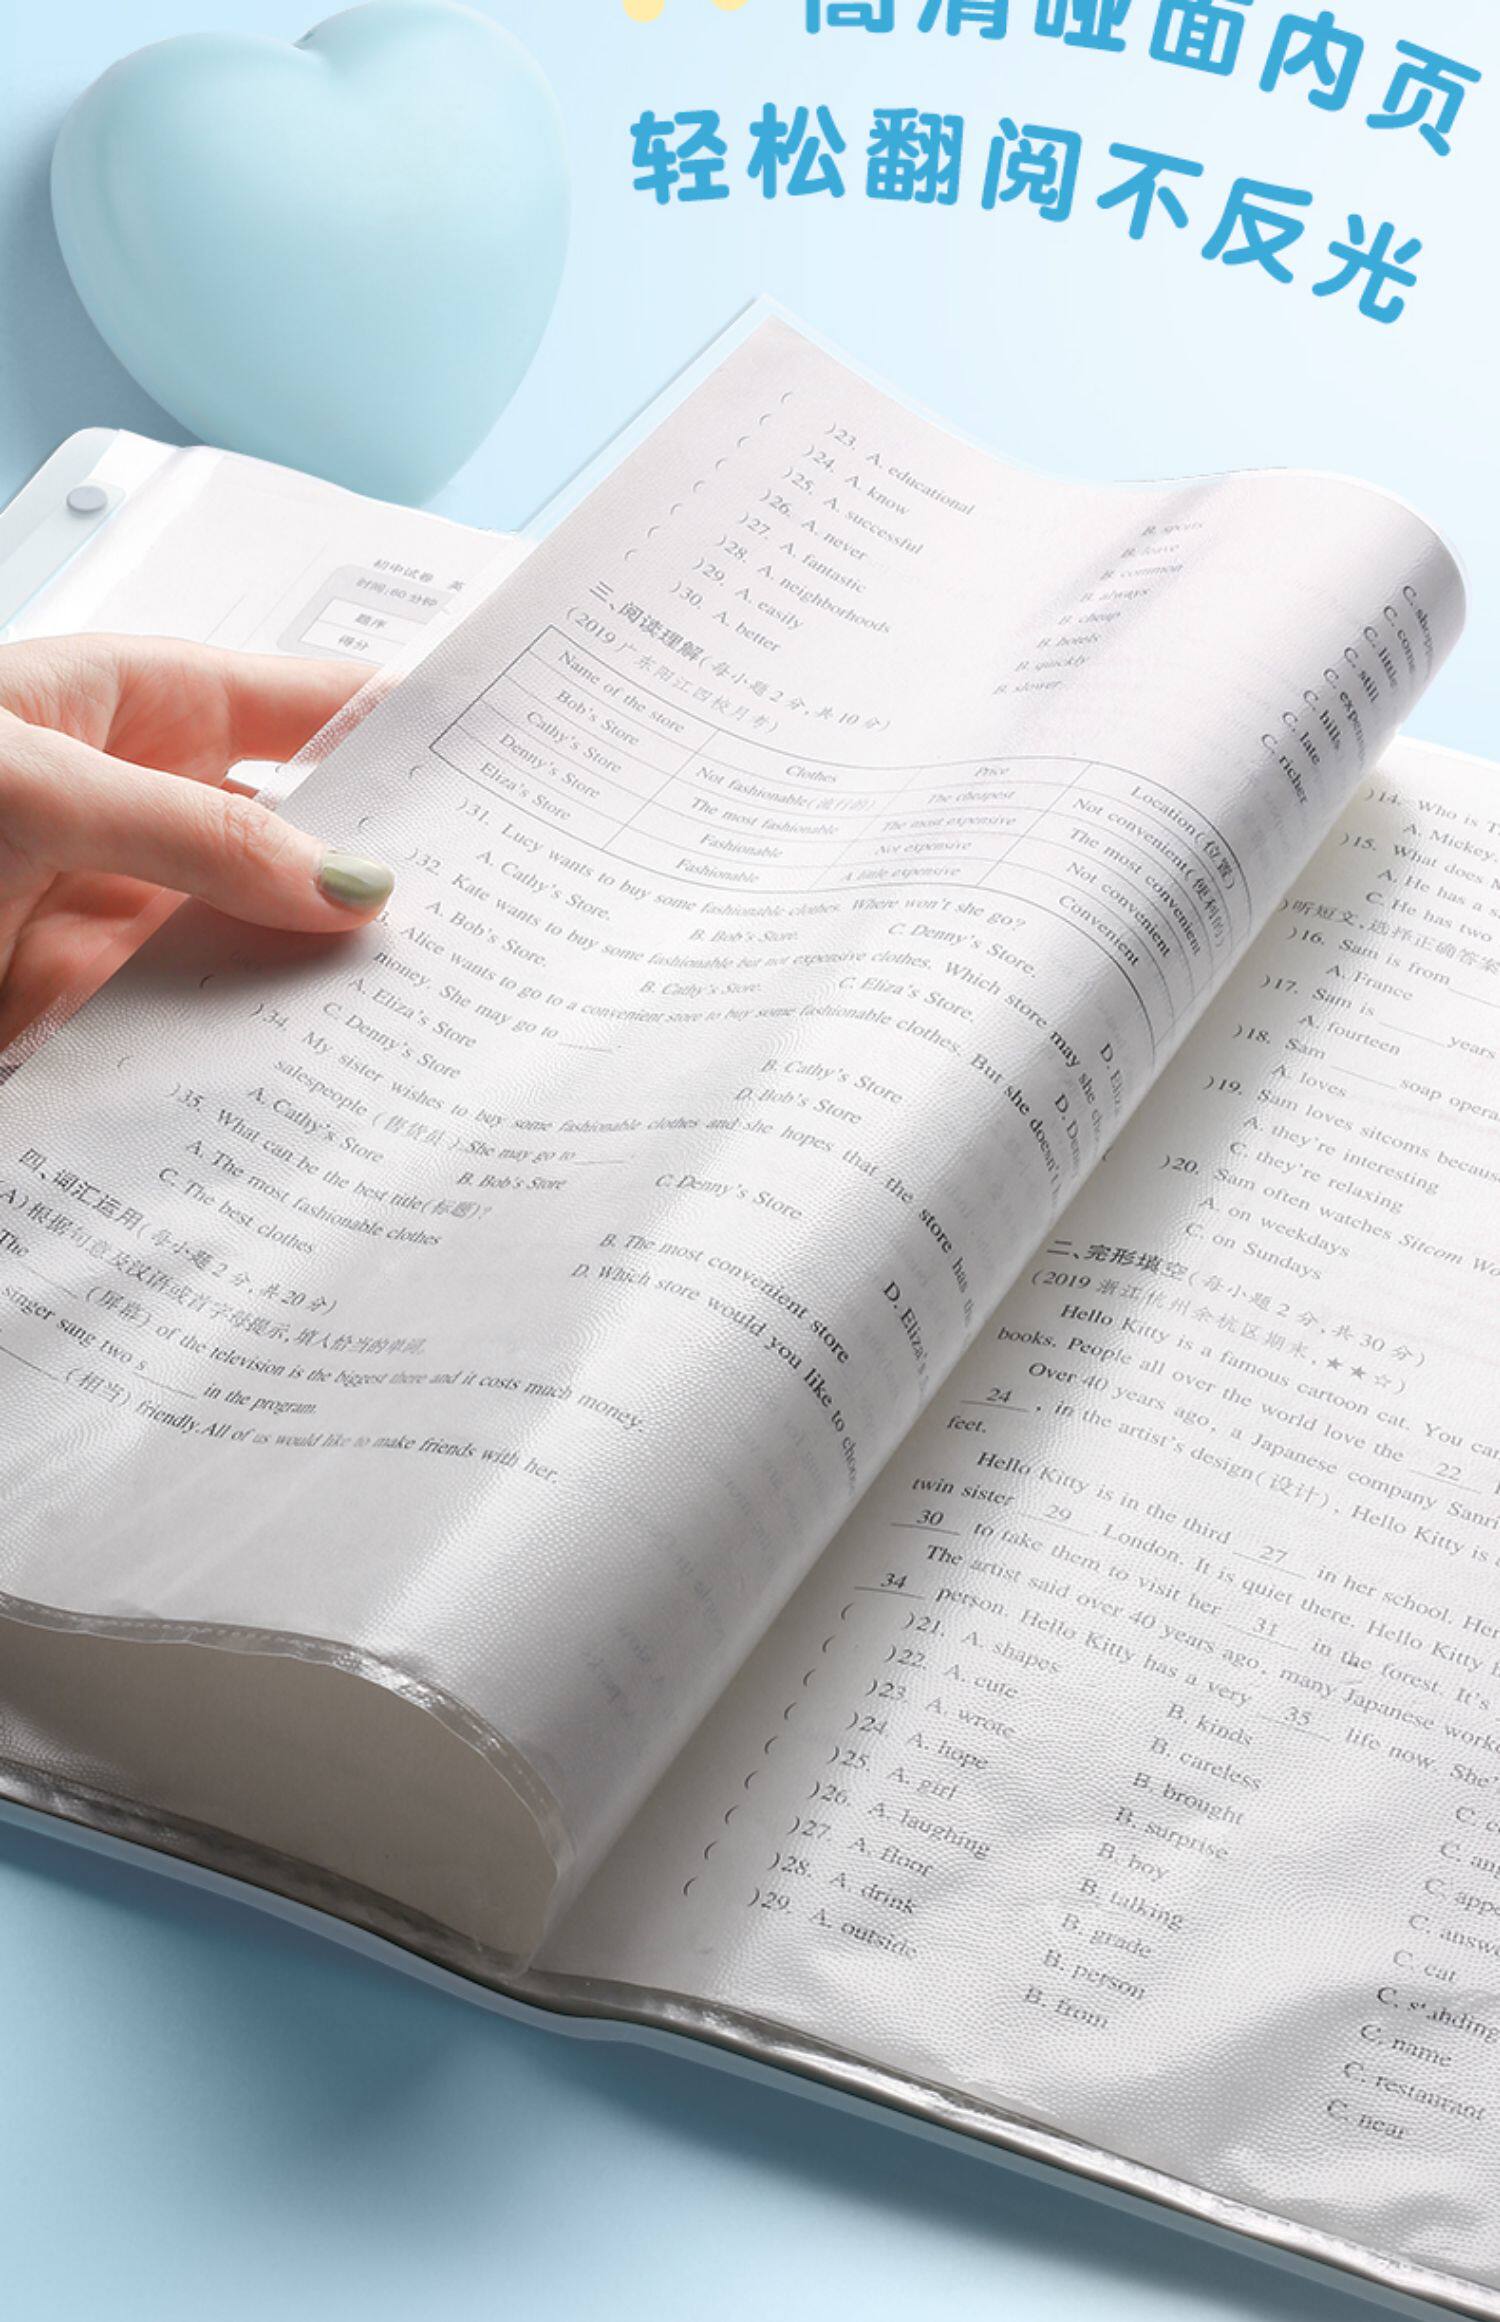 高清哑面内页
轻松翻阅不反光
初中试卷 英
时间:60分钟
题序
得分
)23. A. educational B. sports C. shops
)24. A. know B. leave C. come
)25. A. successful B. common C. little
)26. A. never B. always C. still
)27. A. fantastic B. cheap C. expen
)28. A. neighborhoods B. hotels C. hills
)29. A. easily B. quickly C. late
)30. A. better B. slower C. richer
三、阅读理解(每小题2分,共10分)
(2019广东阳江四校月考)
Name of the store Clothes Price Location(位置)
Bob's Store Not fashionable(流行的) The cheapest Not convenient(便利的)
Cathy's Store The most fashionable The most expensive The most convenient
Denny's Store Fashionable Not expensive Not convenient
Eliza's Store Fashionable A little expensive Convenient
( )31. Lucy wants to buy some fashionable clothes. Where won't she go?
A. Cathy's Store. B. Bob's Store. C. Denny's Store. D. Eliza
( )32. Kate wants to buy some fashionable but not expensive clothes. Which store may she cho
A. Bob's Store. B. Cathy's Store. C. Eliza's Store. D. Denn
3. Alice wants to go to a convenient store to buy some fashionable clothes. But she doesn't h
money. She may go to ____.
A. Eliza's Store B. Cathy's Store
C. Denny's Store D. Bob's Store
( )34. My sister wishes to buy some fashionable clothes and she hopes that the store has th
salespeople (售货员). She may go to ____.
A. Cathy's Store B. Bob's Store C. Denny's Store D. Eliza's S
( )35. What can be the best title(标题)?
A. The most fashionable clothes B. The most convenient store
C. The best clothes D. Which store would you like to choo
四、词汇运用(每小题2分,共20分)
A)根据句意及汉语或首字母提示,填入恰当的单词。
The ____ (屏幕) of the television is the biggest there and it costs much money.
singer sang two s____ in the program.
____ (相当) friendly. All of us would like to make friends with her.
)14. Who is T
A. Mickey.
)15. What does M
A. He has a s
C. He has two
)听短文,选择正确答案
)16. Sam is from ____
A. France
)17. Sam is ____ years
A. fourteen
)18. Sam ____ soap opera
A. loves
)19. Sam loves sitcoms becaus
A. they're interesting
C. they're relaxing
)20. Sam often watches Sitcom Wo
A. on weekdays
C. on Sundays
二、完形填空(每小题2分,共30分)
(2019浙江杭州余杭区期末,★★☆)
Hello Kitty is a famous cartoon cat. You can
books. People all over the world love the 22
Over 40 years ago, a Japanese company Sanri
24 , in the artist's design(设计), Hello Kitty is
feet.
Hello Kitty is in the third 27 in her school. Her
twin sister 29 London. It is quiet there. Hello Kitty
30 to take them to visit her 31 in the forest. It's
The artist said over 40 years ago, many Japanese work
34 person. Hello Kitty has a very 35 life now. She'
( )21. A. shapes B. kinds C. c
( )22. A. cute B. careless C. an
( )23. A. wrote B. brought C. appe
( )24. A. hope B. surprise C. answ
( )25. A. girl B. boy C. cat
( )26. A. laughing B. talking C. standing
( )27. A. floor B. grade C. name
( )28. A. drink B. person C. restaurant
( )29. A. outside B. from C. near